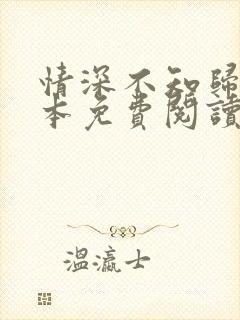 情深不知歸
本免費閱讀
溫瀛士